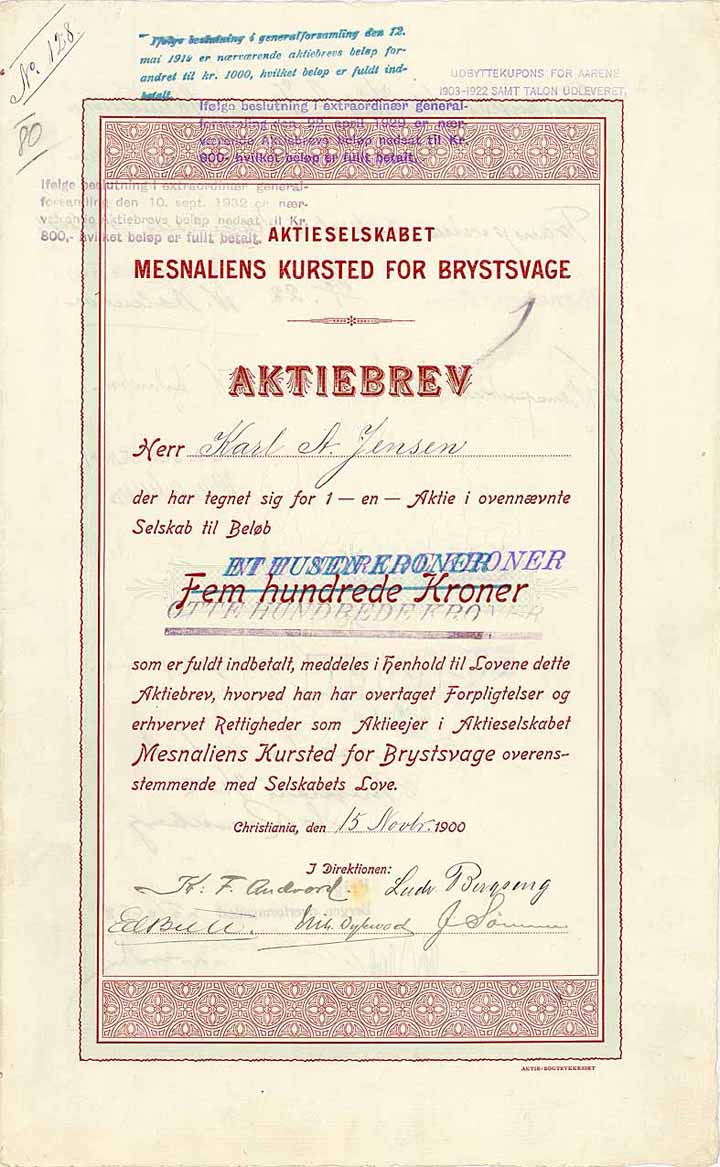 No. 128
80
Ifølge beslutning i generalforsamling den 12.
mai 1919 er nærværende aktiebrevs beløp for-
andret til kr. 1000, hvilket beløp er fuldt ind-
betalt.
UDBYTTEKUPONS FOR AARENE
1903-1922 SAMT TALON UDLEVERET.
Ifølge beslutning i extraordinær general-
forsamling den 22. april 1929 er nær-
værende Aktiebrevs beløp nedsat til Kr.
900- hvilket beløp er fullt betalt.
Ifølge beslutning i extraordinær general-
forsamling den 10. sept. 1932 er nær-
værende Aktiebrevs beløp nedsat til Kr.
800,- hvilket beløp er fullt betalt.
AKTIESELSKABET
MESNALIENS KURSTED FOR BRYSTSVAGE
AKTIEBREV
Herr Karl A. Jensen
der har tegnet sig for 1 — en — Aktie i ovennævnte
Selskab til Beløb
ET TUSEN KRONER
KRONER
Fem hundrede Kroner
OTTE HUNDREDE KRONER
som er fuldt indbetalt, meddeles i Henhold til Lovene dette
Aktiebrev, hvorved han har overtaget Forpligtelser og
erhvervet Rettigheder som Aktieejer i Aktieselskabet
Mesnaliens Kursted for Brystsvage overens-
stemmende med Selskabets Love.
Christiania, den 15 Novbr. 1900
I Direktionen:
K. F. Andvord. Ludv. Bergseng
Ed Bull.
AKTIE-BOGTRYKKERIET